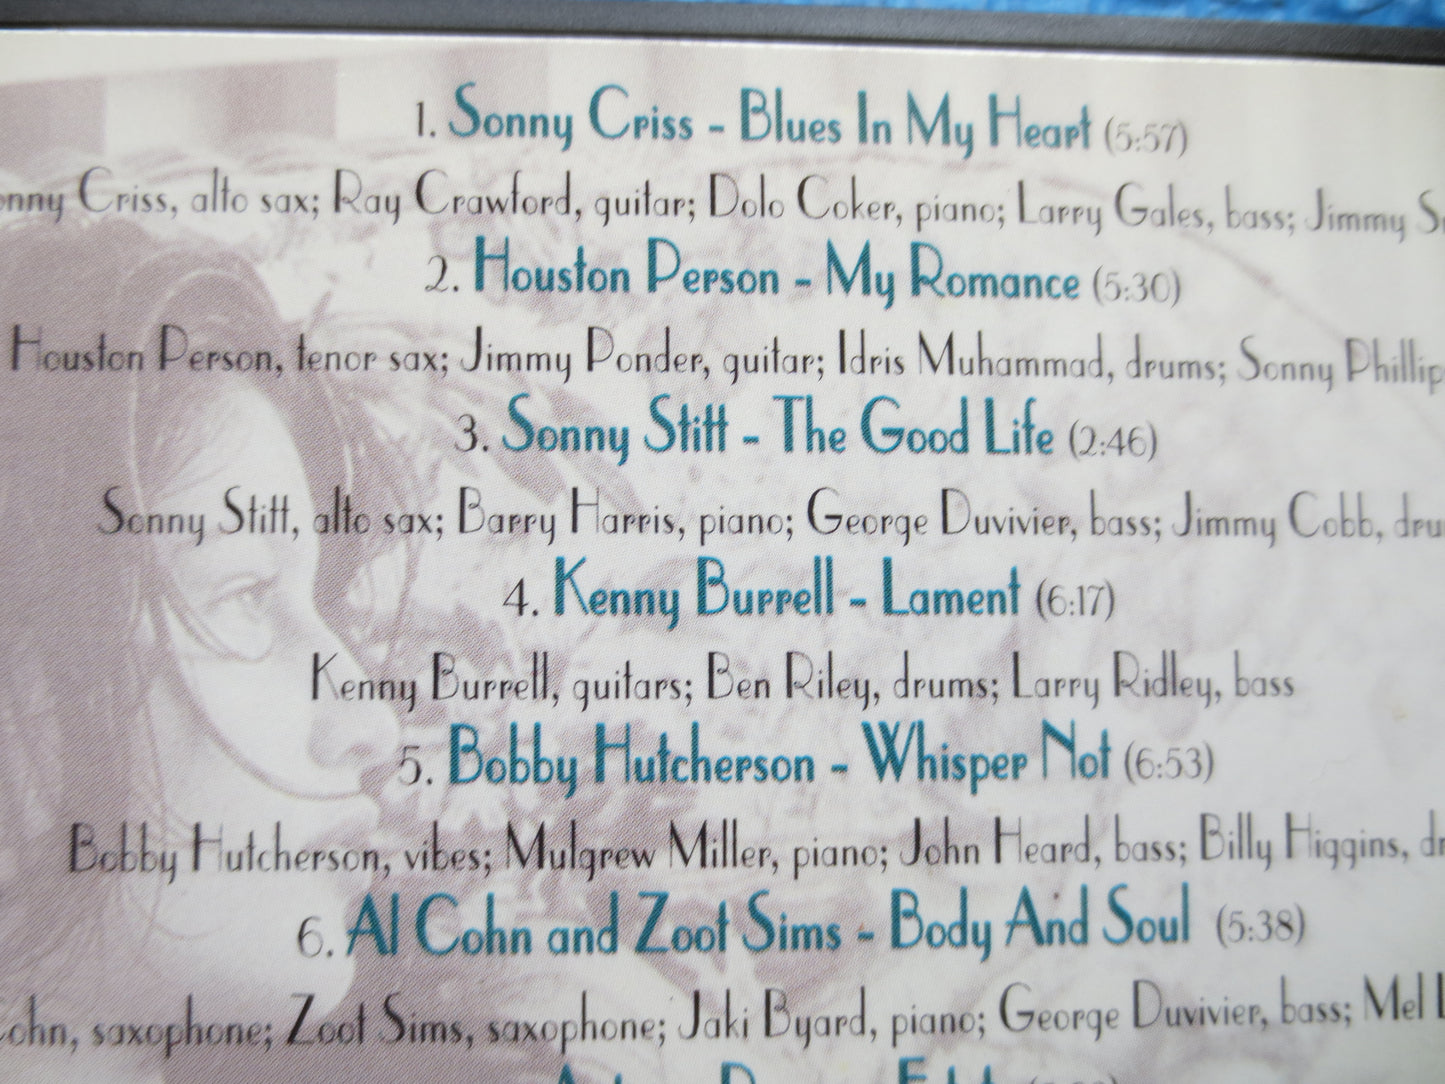 1. Sonny Criss - Blues In My Heart (5:57)
Criss, alto sax; Ray Crawford, guitar; Dolo Coker, piano; Larry Gales, bass; Jimmy
2. Houston Person - My Romance (5:30)
Houston Person, tenor sax; Jimmy Ponder, guitar; Idris Muhammad, drums; Sonny Phillip
3. Sonny Stitt - The Good Life (2:46)
Sonny Stitt, alto sax; Barry Harris, piano; George Duvivier, bass; Jimmy Cobb, dru
4. Kenny Burrell - Lament (6:17)
Kenny Burrell, guitars; Ben Riley, drums; Larry Ridley, bass
5. Bobby Hutcherson - Whisper Not (6:53)
Bobby Hutcherson, vibes; Mulgrew Miller, piano; John Heard, bass; Billy Higgins, dr
6. Al Cohn and Zoot Sims - Body And Soul (5:38)
Cohn, saxophone; Zoot Sims, saxophone; Jaki Byard, piano; George Duvivier, bass; Mel L